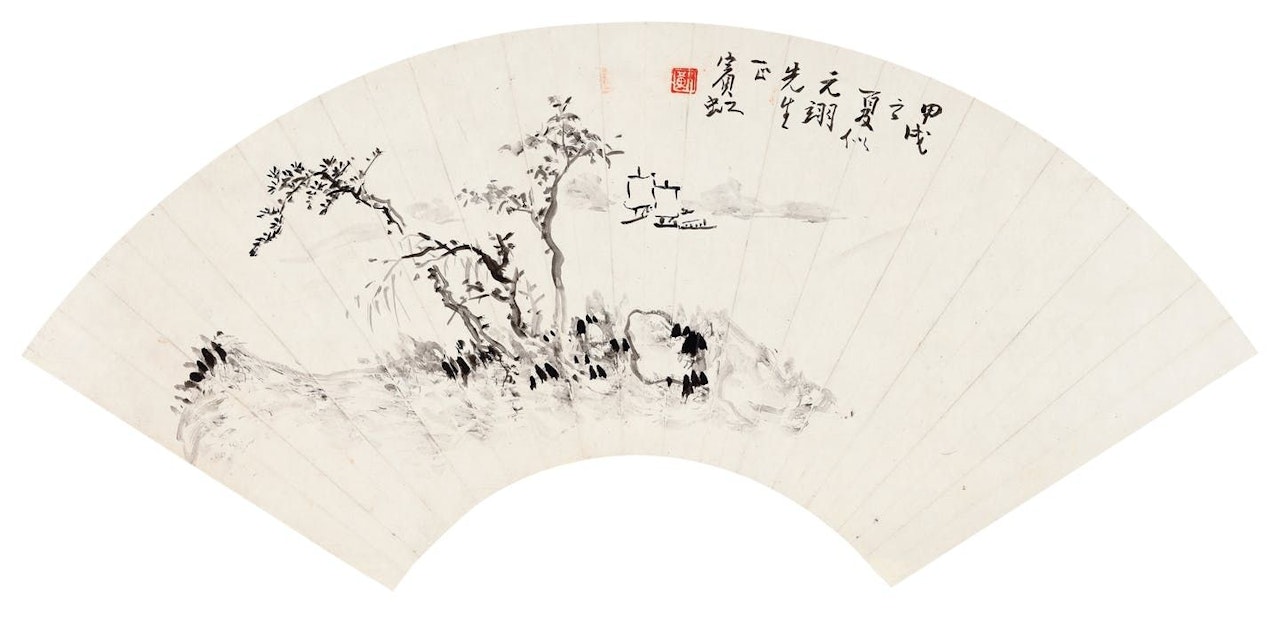 甲戌
夏似
元翊
先生
正
賓虹